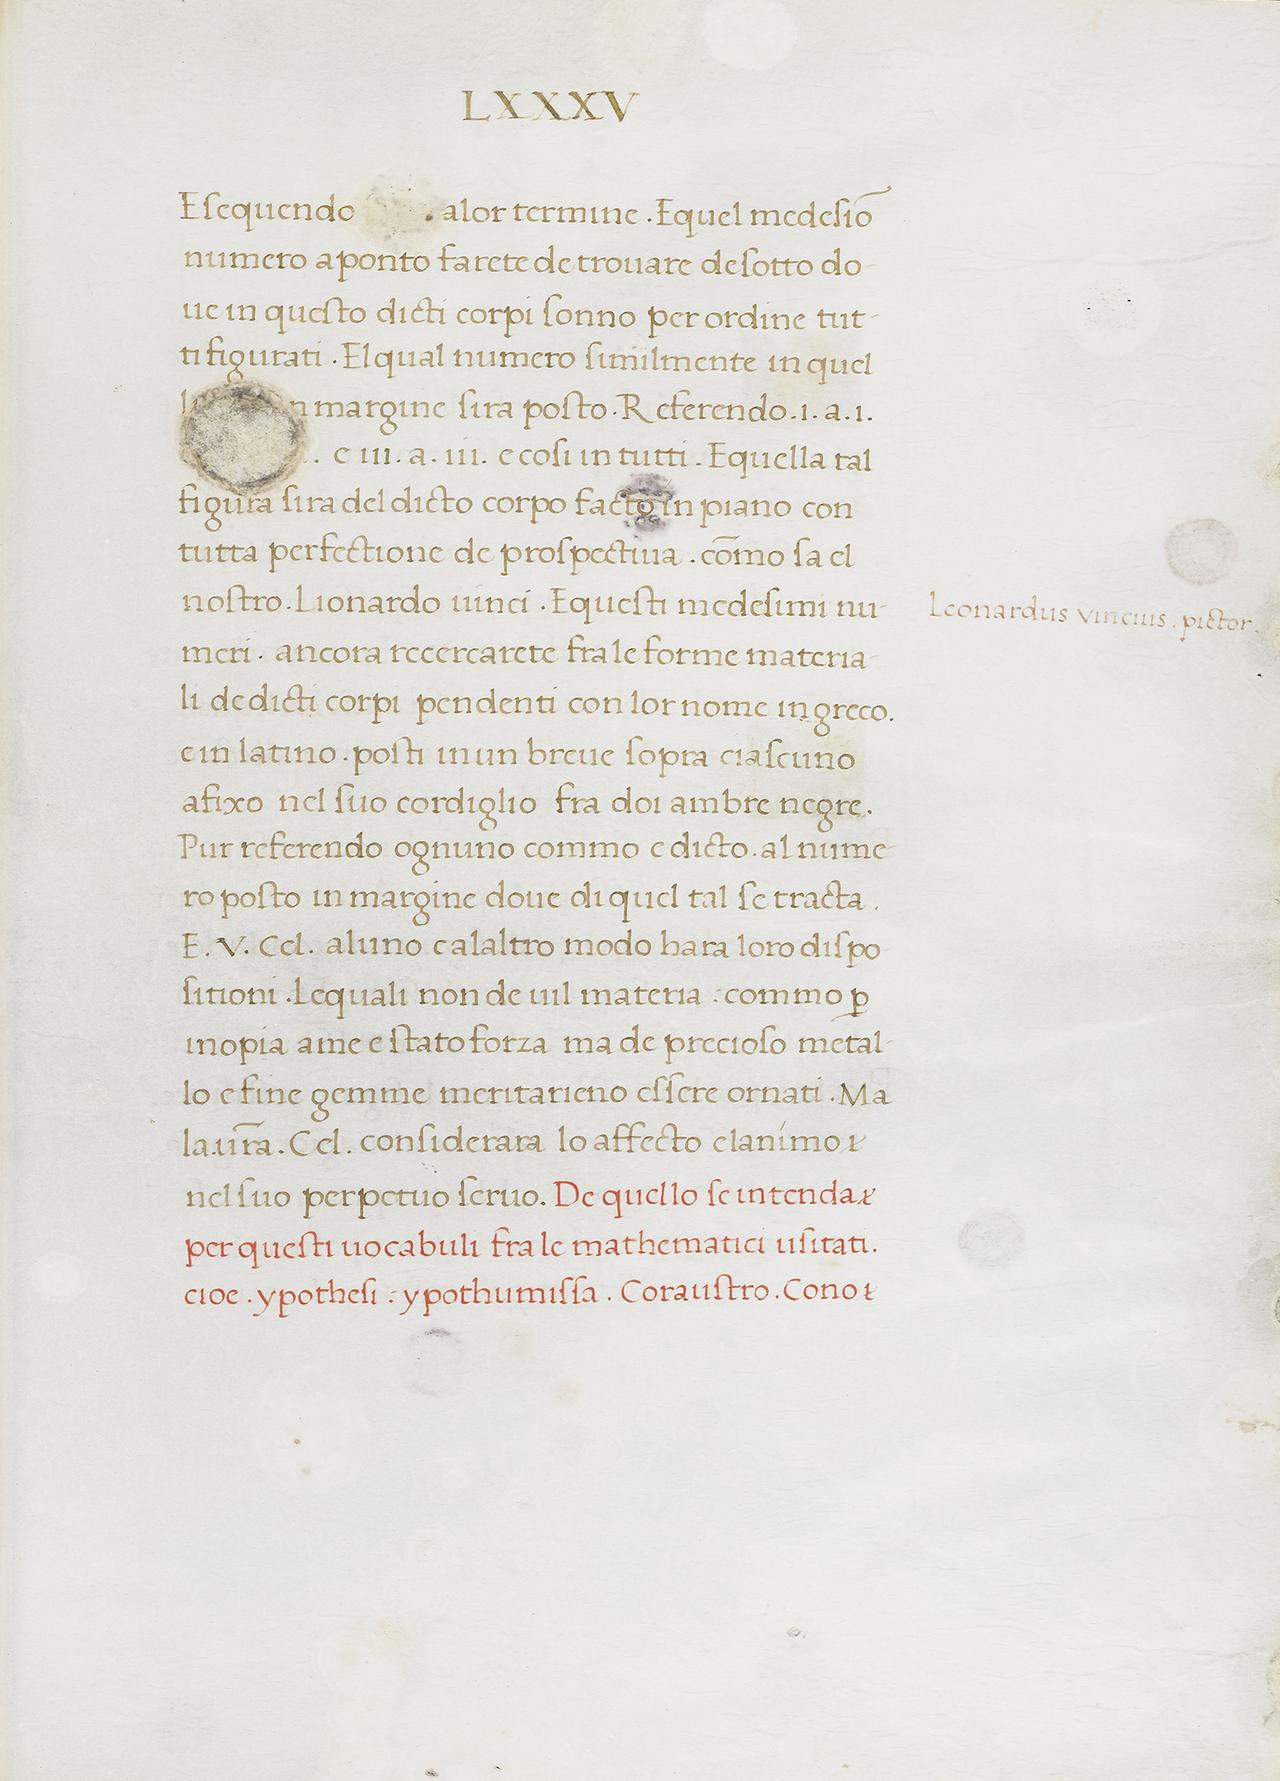 LXXXV
Eſequendo alor termine . Equel medeſiō
numero aponto farete de trouare deſotto do-
ue in queſto dicti corpi ſonno per ordine tut-
ti figurati . El qual numero ſimilmente in quel
n margine ſira poſto . Referendo .1. a .1.
. e III. a. III. e coſi in tutti . Equella tal
figura ſira del dicto corpo facto in piano con
tutta perfectione de proſpectiua . cōmo ſa el
noſtro . Lionardo uinci . Equeſti medeſimi nu-
Leonardus vincius . pictor .
meri . ancora recercarete fra le forme materia-
li de dicti corpi pendenti con lor nome in greco.
e in latino . poſti in un breue ſopra ciaſcuno
afixo nel ſuo cordiglio fra doi ambre negre .
Pur referendo ognuno commo e dicto . al nume-
ro poſto in margine doue di quel tal ſe tracta .
E . V. Cel. aluno e alaltro modo hara loro diſpo
ſitioni . Lequali non de uil materia : commo ꝑ
inopia ame e ſtato forza ma de precioſo metal-
lo e fine gemme meritarieno eſſere ornati . Ma
la .ur̄a . Cel. conſiderara lo affecto elanimo
nel ſuo perpetuo ſeruo. De quello ſe intenda
per queſti uocabuli fra le mathematici uſitati .
cioe . ypotheſi : ypothumiſſa . Corauſtro . Cono